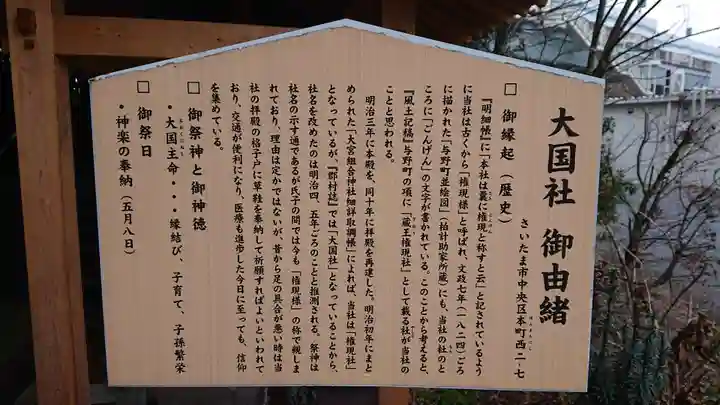 大国社 御由緒
さいたま市中央区本町西二-七
□ 御縁起(歴史)
『明細帳』に「本社は曩に権現と称すと云」と記されているよう
に当社は古くから「権現様」と呼ばれ、文政七年(一八二四)ごろ
に描かれた「与野町並絵図」(祐計助家所蔵)にも、当社の社のと
ころに「ごんげん」の文字が書かれている。このことから考えると、
『風土記稿』与野町の項に「蔵王権現社」として載る社が当社の
ことと思われる。
明治三年に本殿を、同十年に拝殿を再建した。明治初年にまと
められた「大宮組合神社細詳取調帳」によれば、当社は「権現社」
となっているが、『郡村誌』では「大国社」となっていることから、
社名を改めたのは明治四、五年ごろのことと推測される。祭神は
社名の示す通であるが氏子の間では今も「権現様」の称で親しま
れており、理由は定かではないが、昔から足の具合が悪い時は当
社の拝殿の格子戸に草鞋を奉納して祈願すればよいといわれて
おり、交通が便利になり、医療も進歩した今日に至っても、信仰
を集めている。
□ 御祭神と御神徳
・大国主命・・・縁結び、子育て、子孫繁栄
□ 御祭日
・神楽の奉納(五月八日)